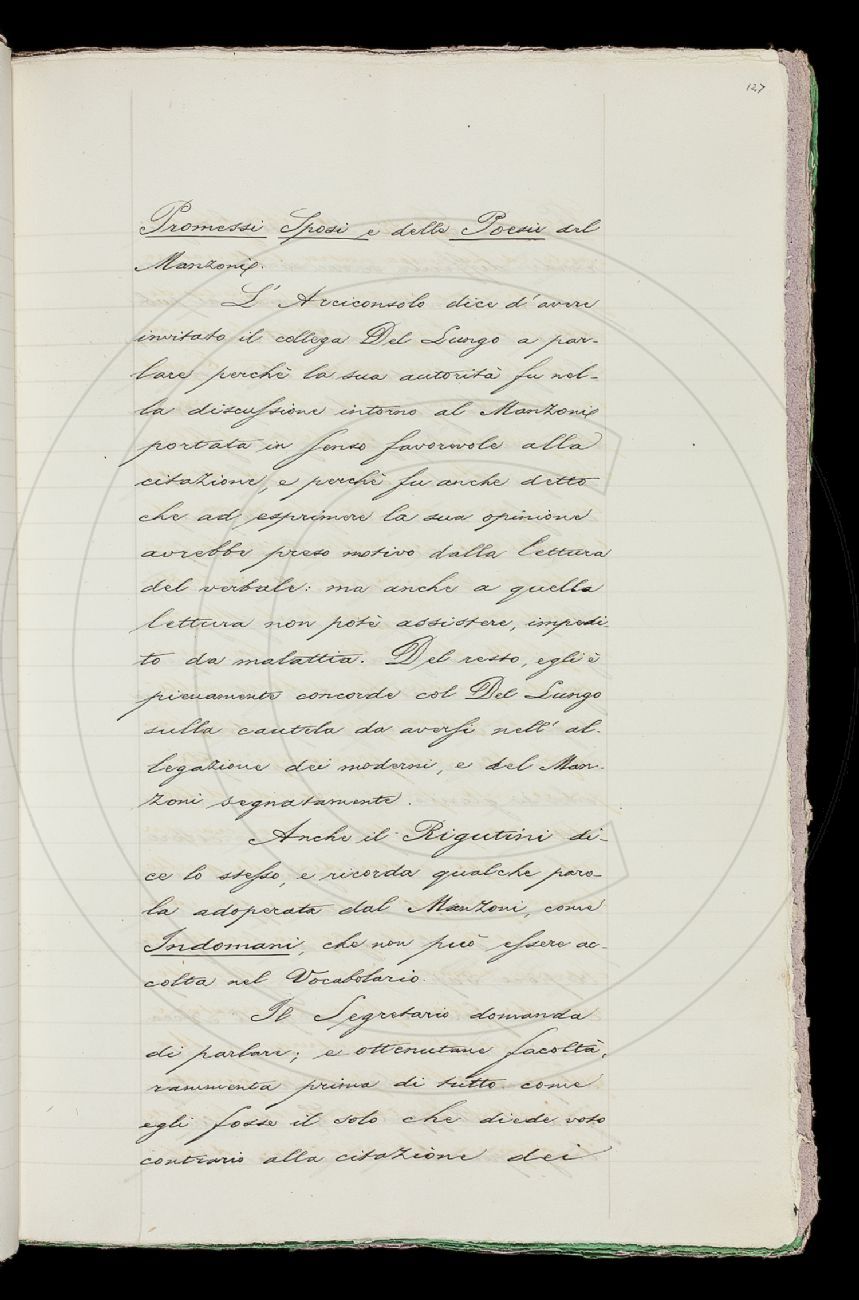 127
Promessi Sposi e delle Poesie del
Manzoni.
L' Arciconsolo dice d' avere
invitato il collega Del Lungo a par-
lare perchè la sua autorità fu nel-
la discussione intorno al Manzoni
portata in senso favorevole alla
citazione, e perchè fu anche detto
che ad esprimere la sua opinione
avrebbe preso motivo dalla lettura
del verbale: ma anche a quella
lettura non potè assistere, impedi-
to da malattia. Del resto, egli è
pienamente concorde col Del Lungo
sulla cautela da aversi nell' al-
legazione dei moderni, e del Man-
zoni segnatamente.
Anche il Rigutini di-
ce lo stesso, e ricorda qualche paro-
la adoperata dal Manzoni, come
Indomani, che non può essere ac-
colta nel Vocabolario.
Il Segretario domanda
di parlare; e ottenutane facoltà,
rammenta prima di tutto come
egli fosse il solo che diede voto
contrario alla citazione dei